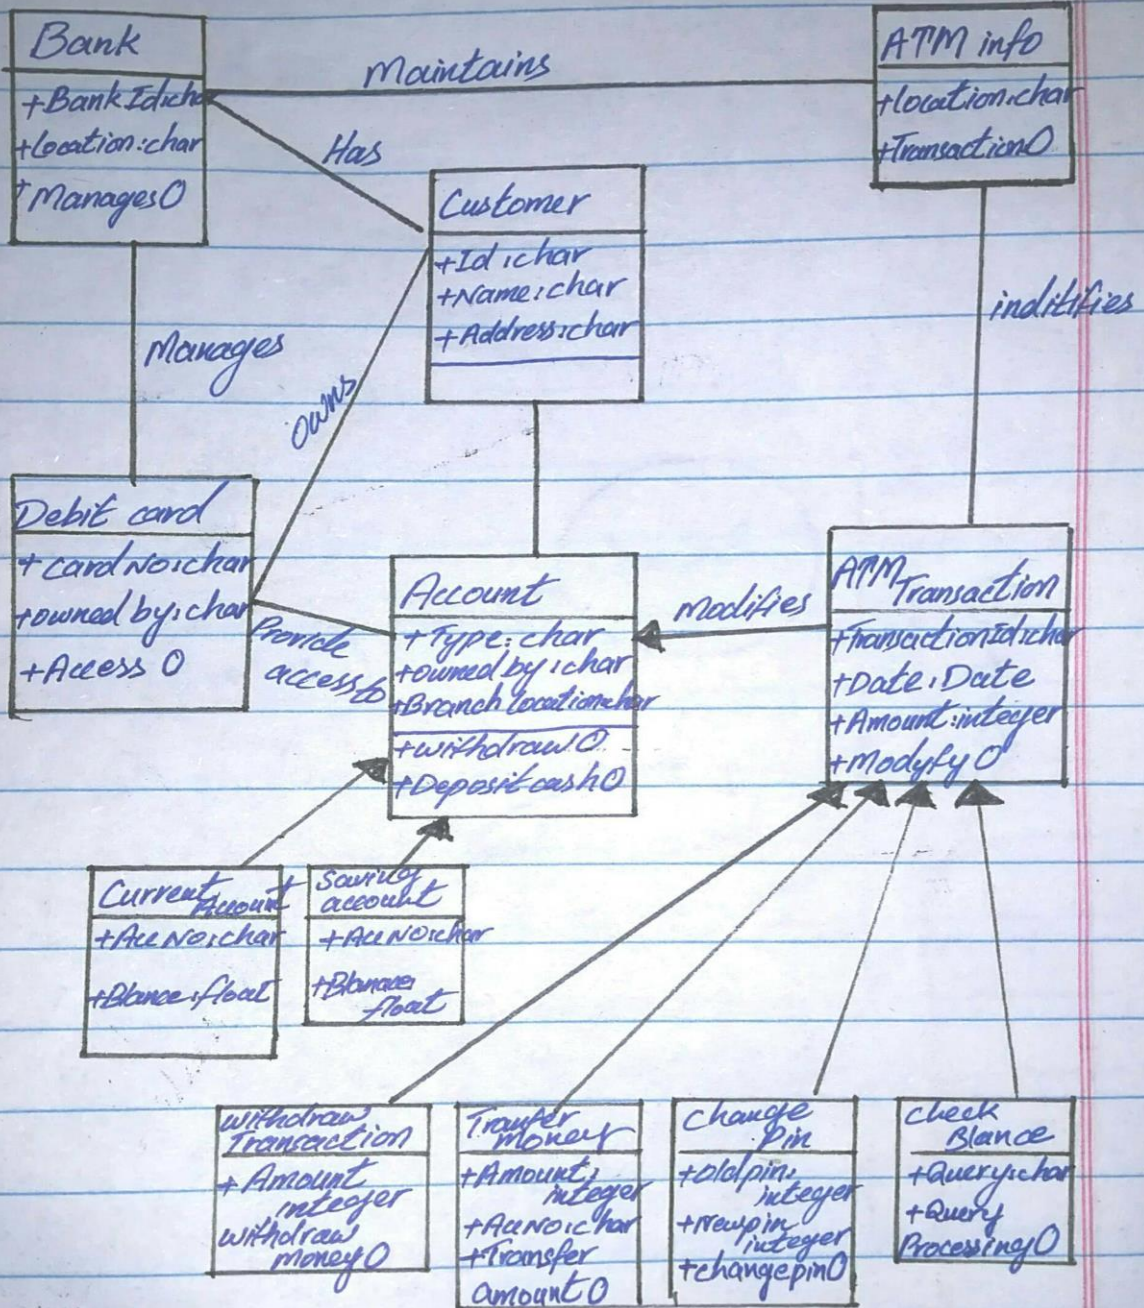 Bank
+Bank Id:cha
+Location:char
+Manages()
Maintains
ATM info
+location:char
+Transaction()
Has
Customer
+Id:char
+Name:char
+Address:char
Manages
owns
inditifies
Debit card
+cardNo:char
+owned by:char
+Access ()
Provide
access to
Account
+Type: char
+owned by:char
+Branch location:char
+withdraw()
+Deposit cash()
Modifies
ATM
Transaction
+TransactionId:char
+Date:Date
+Amount:integer
+Modyfy()
Current
Account
+AccNo:char
+Blance:float
Saving
account
+AccNo:char
+Blanace:
float
withdraw
Transaction
+Amount
integer
withdraw
money()
Tranfer
money
+Amount:
integer
+AccNo:char
+Transfer
amount()
Change
Pin
+oldpin:
integer
+Newpin
integer
+changepin()
check
Blance
+Query:char
+Query
Processing()